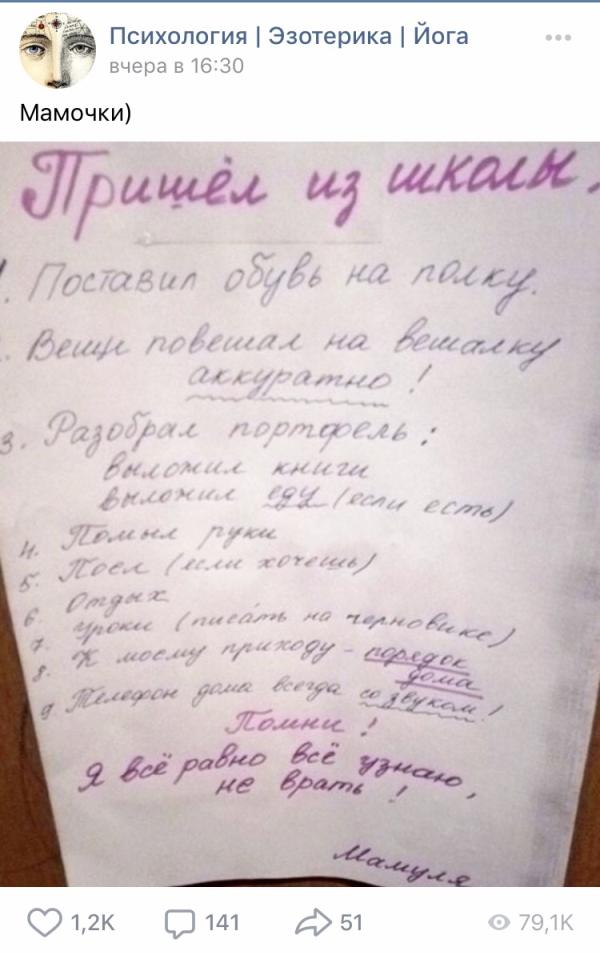 Психология | Эзотерика | Йога
вчера в 16:30
Мамочки)
Пришёл из школы.
. Поставил обувь на полку.
. Вещи повешал на вешалку
аккуратно!
3. Разобрал портфель:
выложил книги
выложил еду (если есть)
4. Помыл руки
5. Поел (если хочешь)
6. Отдых
7. Уроки (писа́ть на черновике)
8. К моему приходу - порядок
дома
9 Телефон дома всегда со звуком!
Помни!
Я всё равно всё узнаю,
не врать!
Мамуля
1,2K 141 51 79,1K